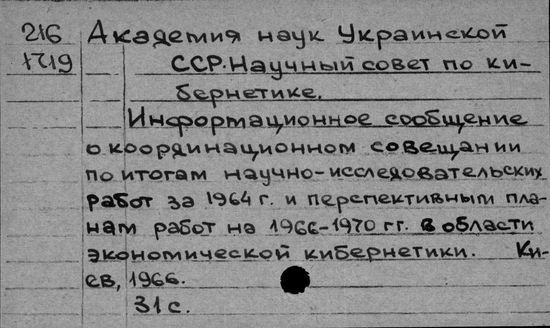 216 Академия наук Украинской
1719 ССР. Научный совет по ки-
бернетике.
Информационное сообщение
о координационном совещании
по итогам научно-исследовательских
работ за 1964 г. и перспективным пла-
нам работ на 1966-1970 гг. в области
экономической кибернетики. Ки-
ев, 1966.
31 с.